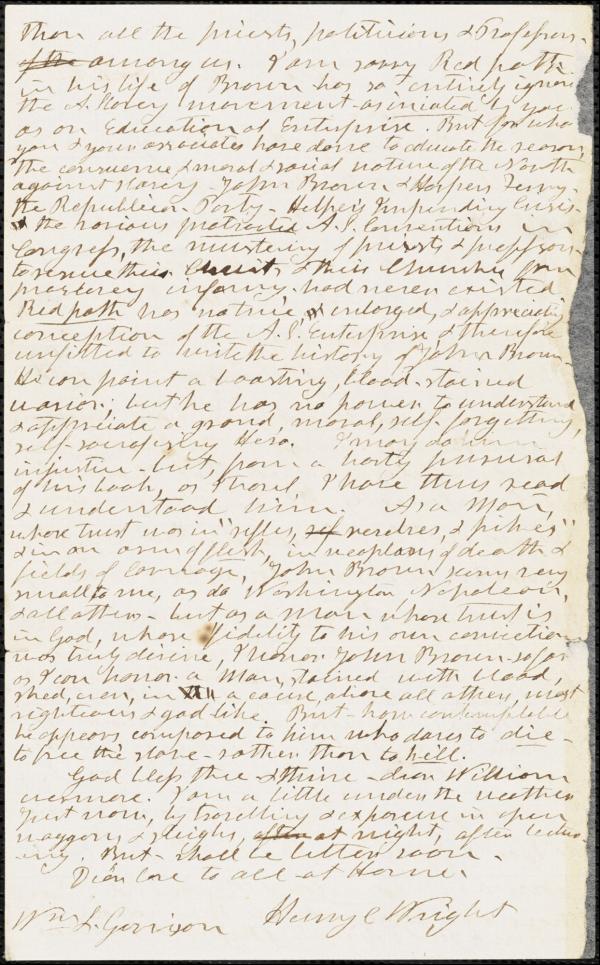 than all the priests, politicians & Professors
of the among us. I am sorry Redpath
in his life of Brown has so entirely ignored
the A. Slavery movement associated by you
as an Educational Enterprise. But for what
you & your associates have done to educate the reason,
the conscience & moral & social nature of the North
against slavery - John Brown & Harpers Ferry -
the Republican Party - Helper's Impending Crisis -
& the various protracted A.S. Conventions in
Congress, the mustering of priests & professors
to rescue their Christ & their Church from
proslavery infamy - had never existed.
Redpath has not nice, & enlarged, & appreciating
conception of the A.S. Enterprise & therefore
unfitted to write the history of John Brown -
He can paint a boasting, blood-stained
warior; but he has no power to understand
& appreciate a grand, moral, self-forgetting,
self-sacrificing Hero. I may do him
injustice - but, from a hasty perusal
of his book, as thoro', I have thus read
& understood him. As a Man,
whose trust was in "rifles, revolvers, & pikes"
& in an arm of flesh, in weapons of death &
fields of carnage, John Brown seems very
small to me, as do Washington Napoleon,
& all others - but as a man whose trust is
in God, whose fidelity to his own convictions
was truly divine, I honor John Brown - so far
as I can honor a man, stained with blood,
shed, even, in a cause, above all others, most
righteous & god-like. But - how contemptible
he appears compared to him who dares to die -
to free the slave - rather than to kill.
God bless thee & thine - dear William
evermore. I am a little under the weather
just now, by travelling & exposure in open
waggons & sleighs, after at night, after lectur-
ing. But - shall be better soon.
Dear love to all at Home.
Wm L. Garrison Henry C Wright